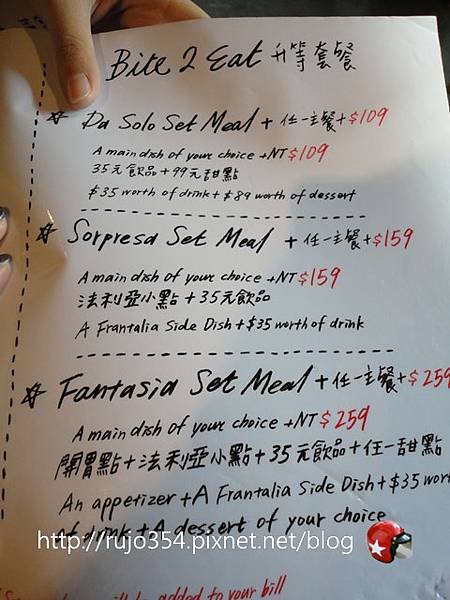 Bite 2 Eat 升等套餐
Da Solo Set Meal + 任一主餐+$109
A main dish of your choice +NT$109
35元飲品+99元甜點
$35 worth of drink+$89 worth of dessert
Sorpresa Set Meal + 任一主餐+$159
A main dish of your choice +NT$159
法利亞小點+35元飲品
A Frantalia Side Dish+$35 worth of drink
Fantasia Set Meal + 任一主餐+$259
A main dish of your choice +NT$259
開胃點+法利亞小點+35元飲品+任一甜點
An appetizer +A Frantalia Side Dish+$35 wort
of drink +A dessert of your choice
http://rujo354.pixnet.net/blog
will be added to your bill